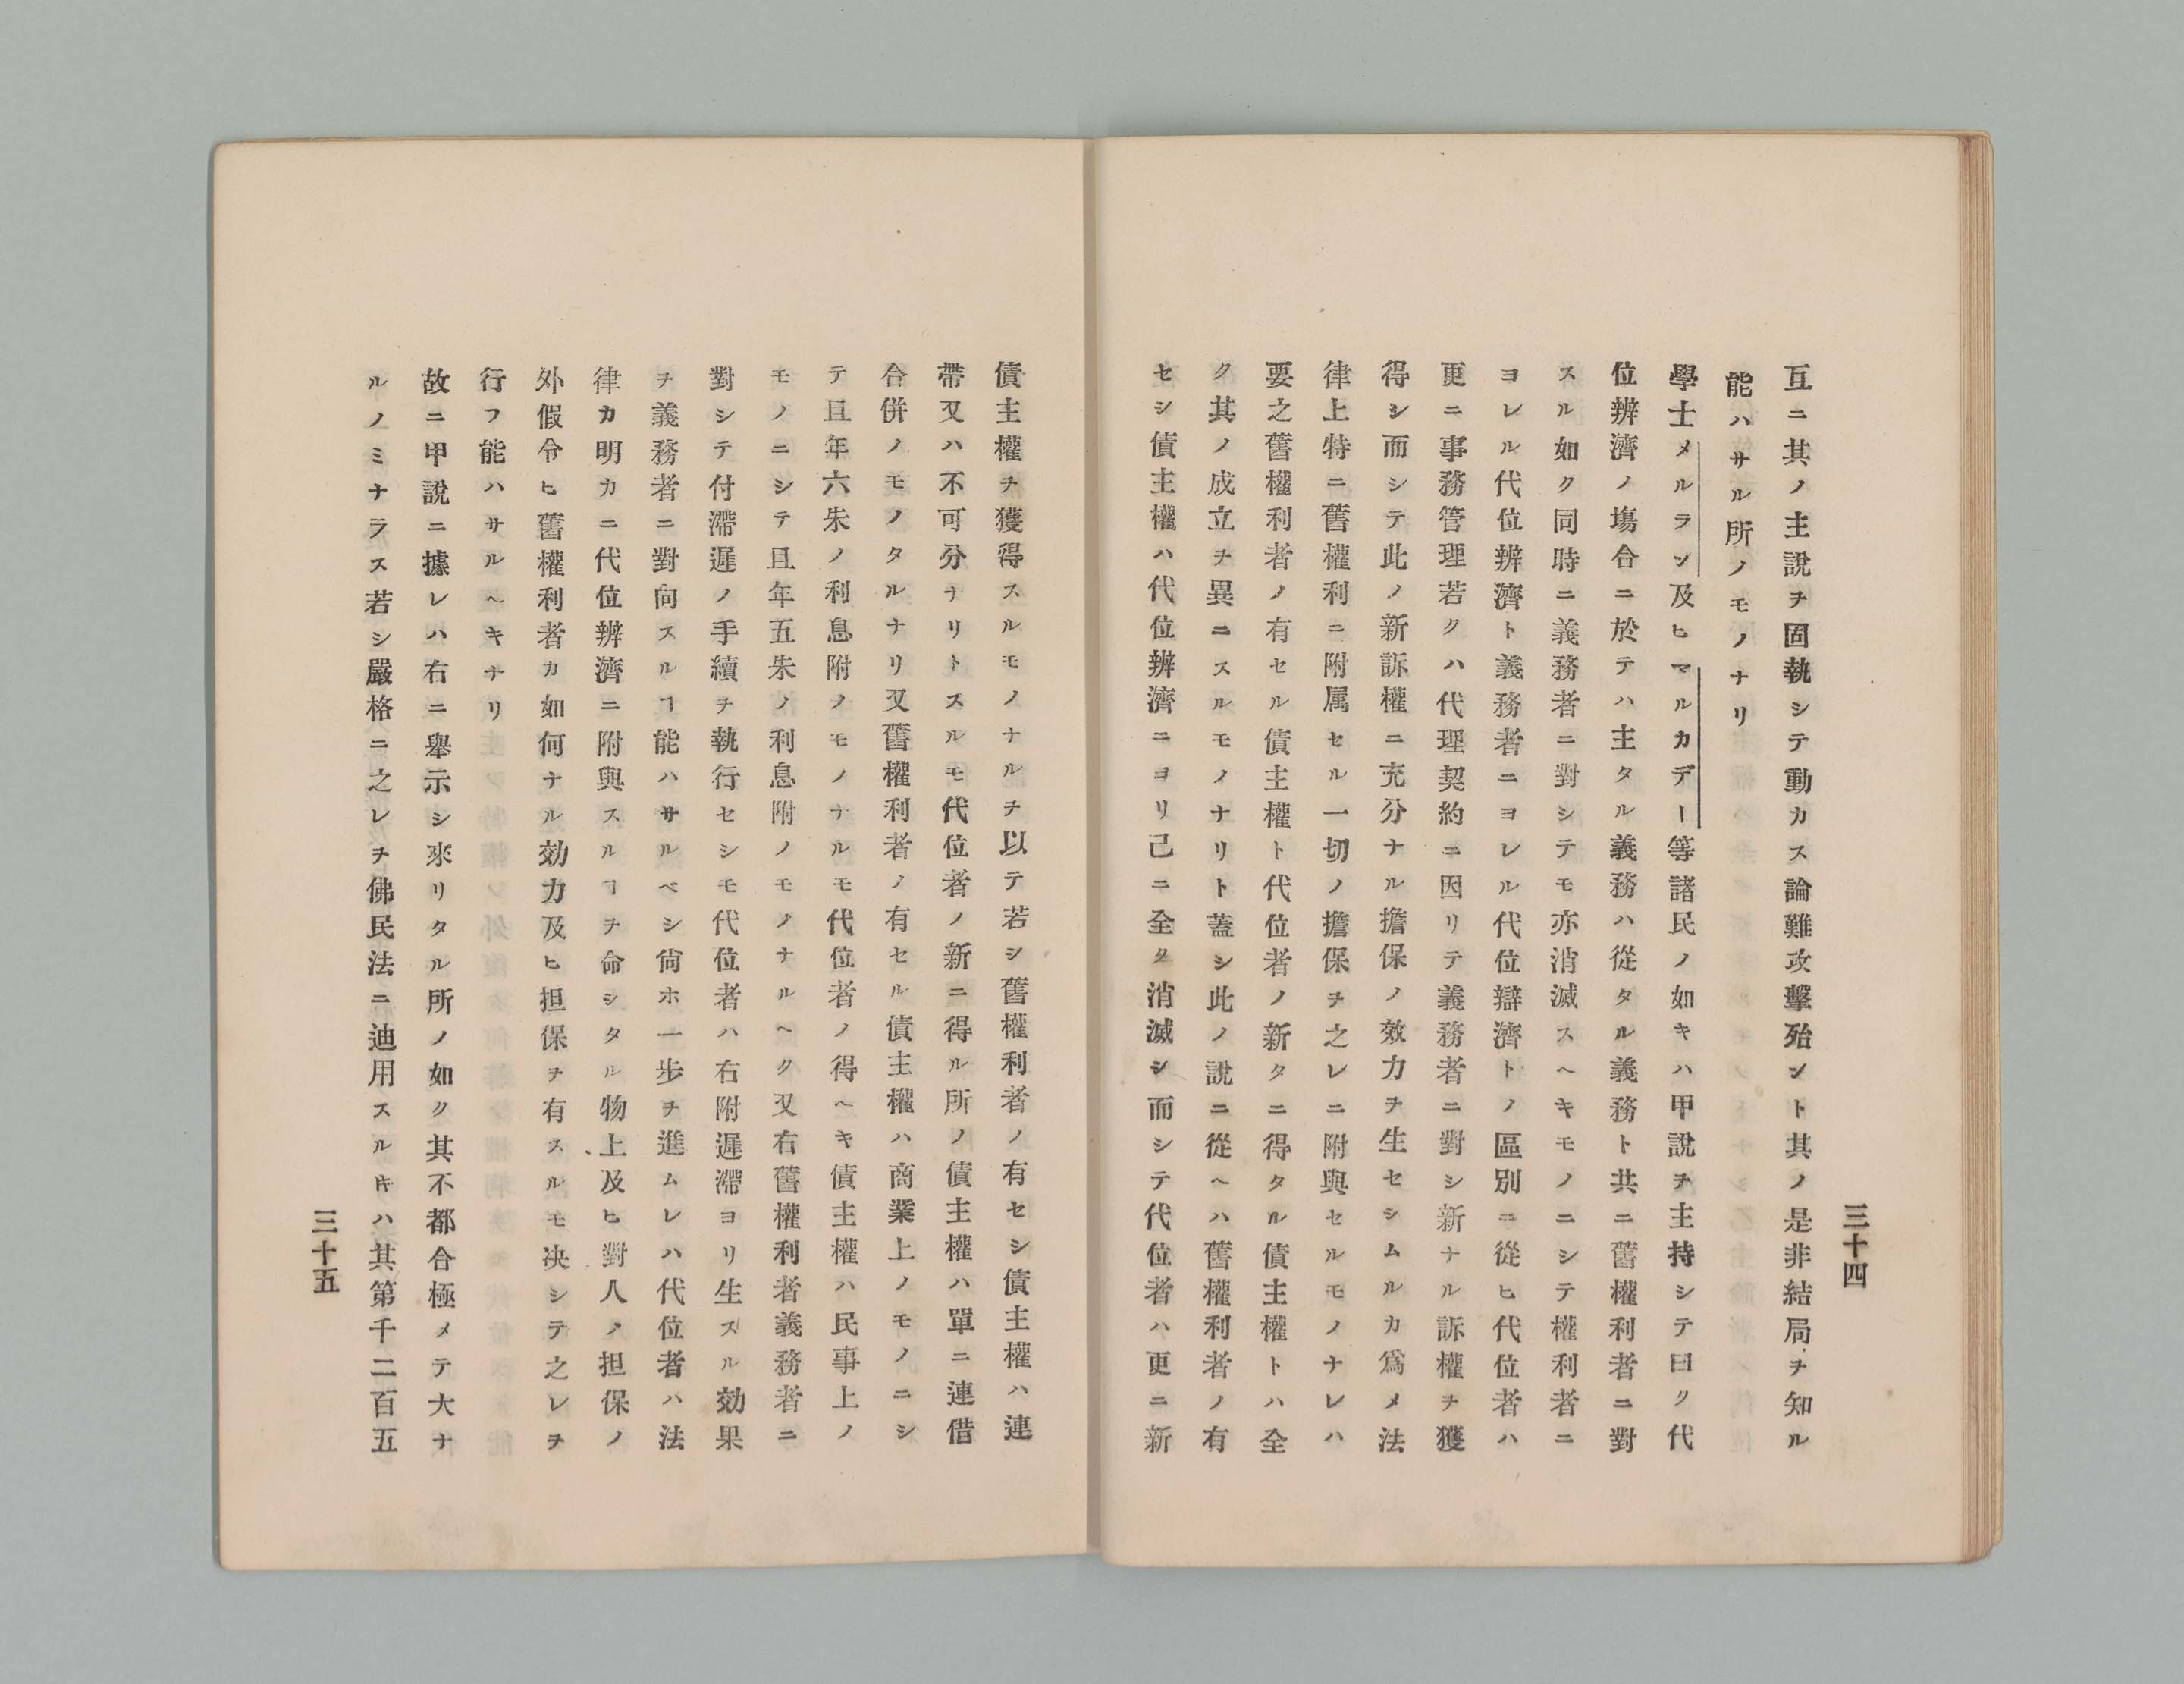 三十四
互ニ其ノ主說ヲ固執シテ動カス論難攻擊殆ント其ノ是非結局ヲ知ル
能ハサル所ノモノナリ
學士メルラン及ヒマルカデー等諸民ノ如キハ甲說ヲ主持シテ曰ク代
位辨濟ノ塲合ニ於テハ主タル義務ハ從タル義務ト共ニ舊權利者ニ對
スル如ク同時ニ義務者ニ對シテモ亦消滅スヘキモノニシテ權利者ニ
ヨレル代位辨濟ト義務者ニヨレル代位辯濟トノ區別ニ從ヒ代位者ハ
更ニ事務管理若クハ代理契約ニ因リテ義務者ニ對シ新ナル訴權ヲ獲
得シ而シテ此ノ新訴權ニ充分ナル擔保ノ效力ヲ生セシムルカ爲メ法
律上特ニ舊權利ニ附属セル一切ノ擔保ヲ之レニ附與セルモノナレハ
要之舊權利者ノ有セル債主權ト代位者ノ新タニ得タル債主權トハ全
ク其ノ成立ヲ異ニスルモノナリト蓋シ此ノ說ニ從ヘハ舊權利者ノ有
セシ債主權ハ代位辨濟ニヨリ己ニ全タ消滅シ而シテ代位者ハ更ニ新
債主權ヲ獲得スルモノナルヲ以テ若シ舊權利者ノ有セシ債主權ハ連
帶又ハ不可分ナリトスルモ代位者ノ新ニ得ル所ノ債主權ハ單ニ連借
合併ノモノタルナリ又舊權利者ノ有セル債主權ハ商業上ノモノニシ
テ且年六朱ノ利息附ノモノナルモ代位者ノ得ヘキ債主權ハ民事上ノ
モノニシテ且年五朱ノ利息附ノモノナルヘク又右舊權利者義務者ニ
對シテ付滯遲ノ手續ヲ執行セシモ代位者ハ右附遲滯ヨリ生スル効果
ヲ義務者ニ對向スルヿ能ハサルベシ尙ホ一步ヲ進ムレハ代位者ハ法
律カ明カニ代位辨濟ニ附與スルヿヲ命シタル物上及ヒ對人ノ担保ノ
外假令ヒ舊權利者カ如何ナル効力及ヒ担保ヲ有スルモ决シテ之レヲ
行フ能ハサルヘキナリ
故ニ甲說ニ據レハ右ニ舉示シ來リタル所ノ如ク其不都合極メテ大ナ
ルノミナラス若シ嚴格ニ之レヲ佛民法ニ迪用スルㇳキハ其第千二百五
三十五